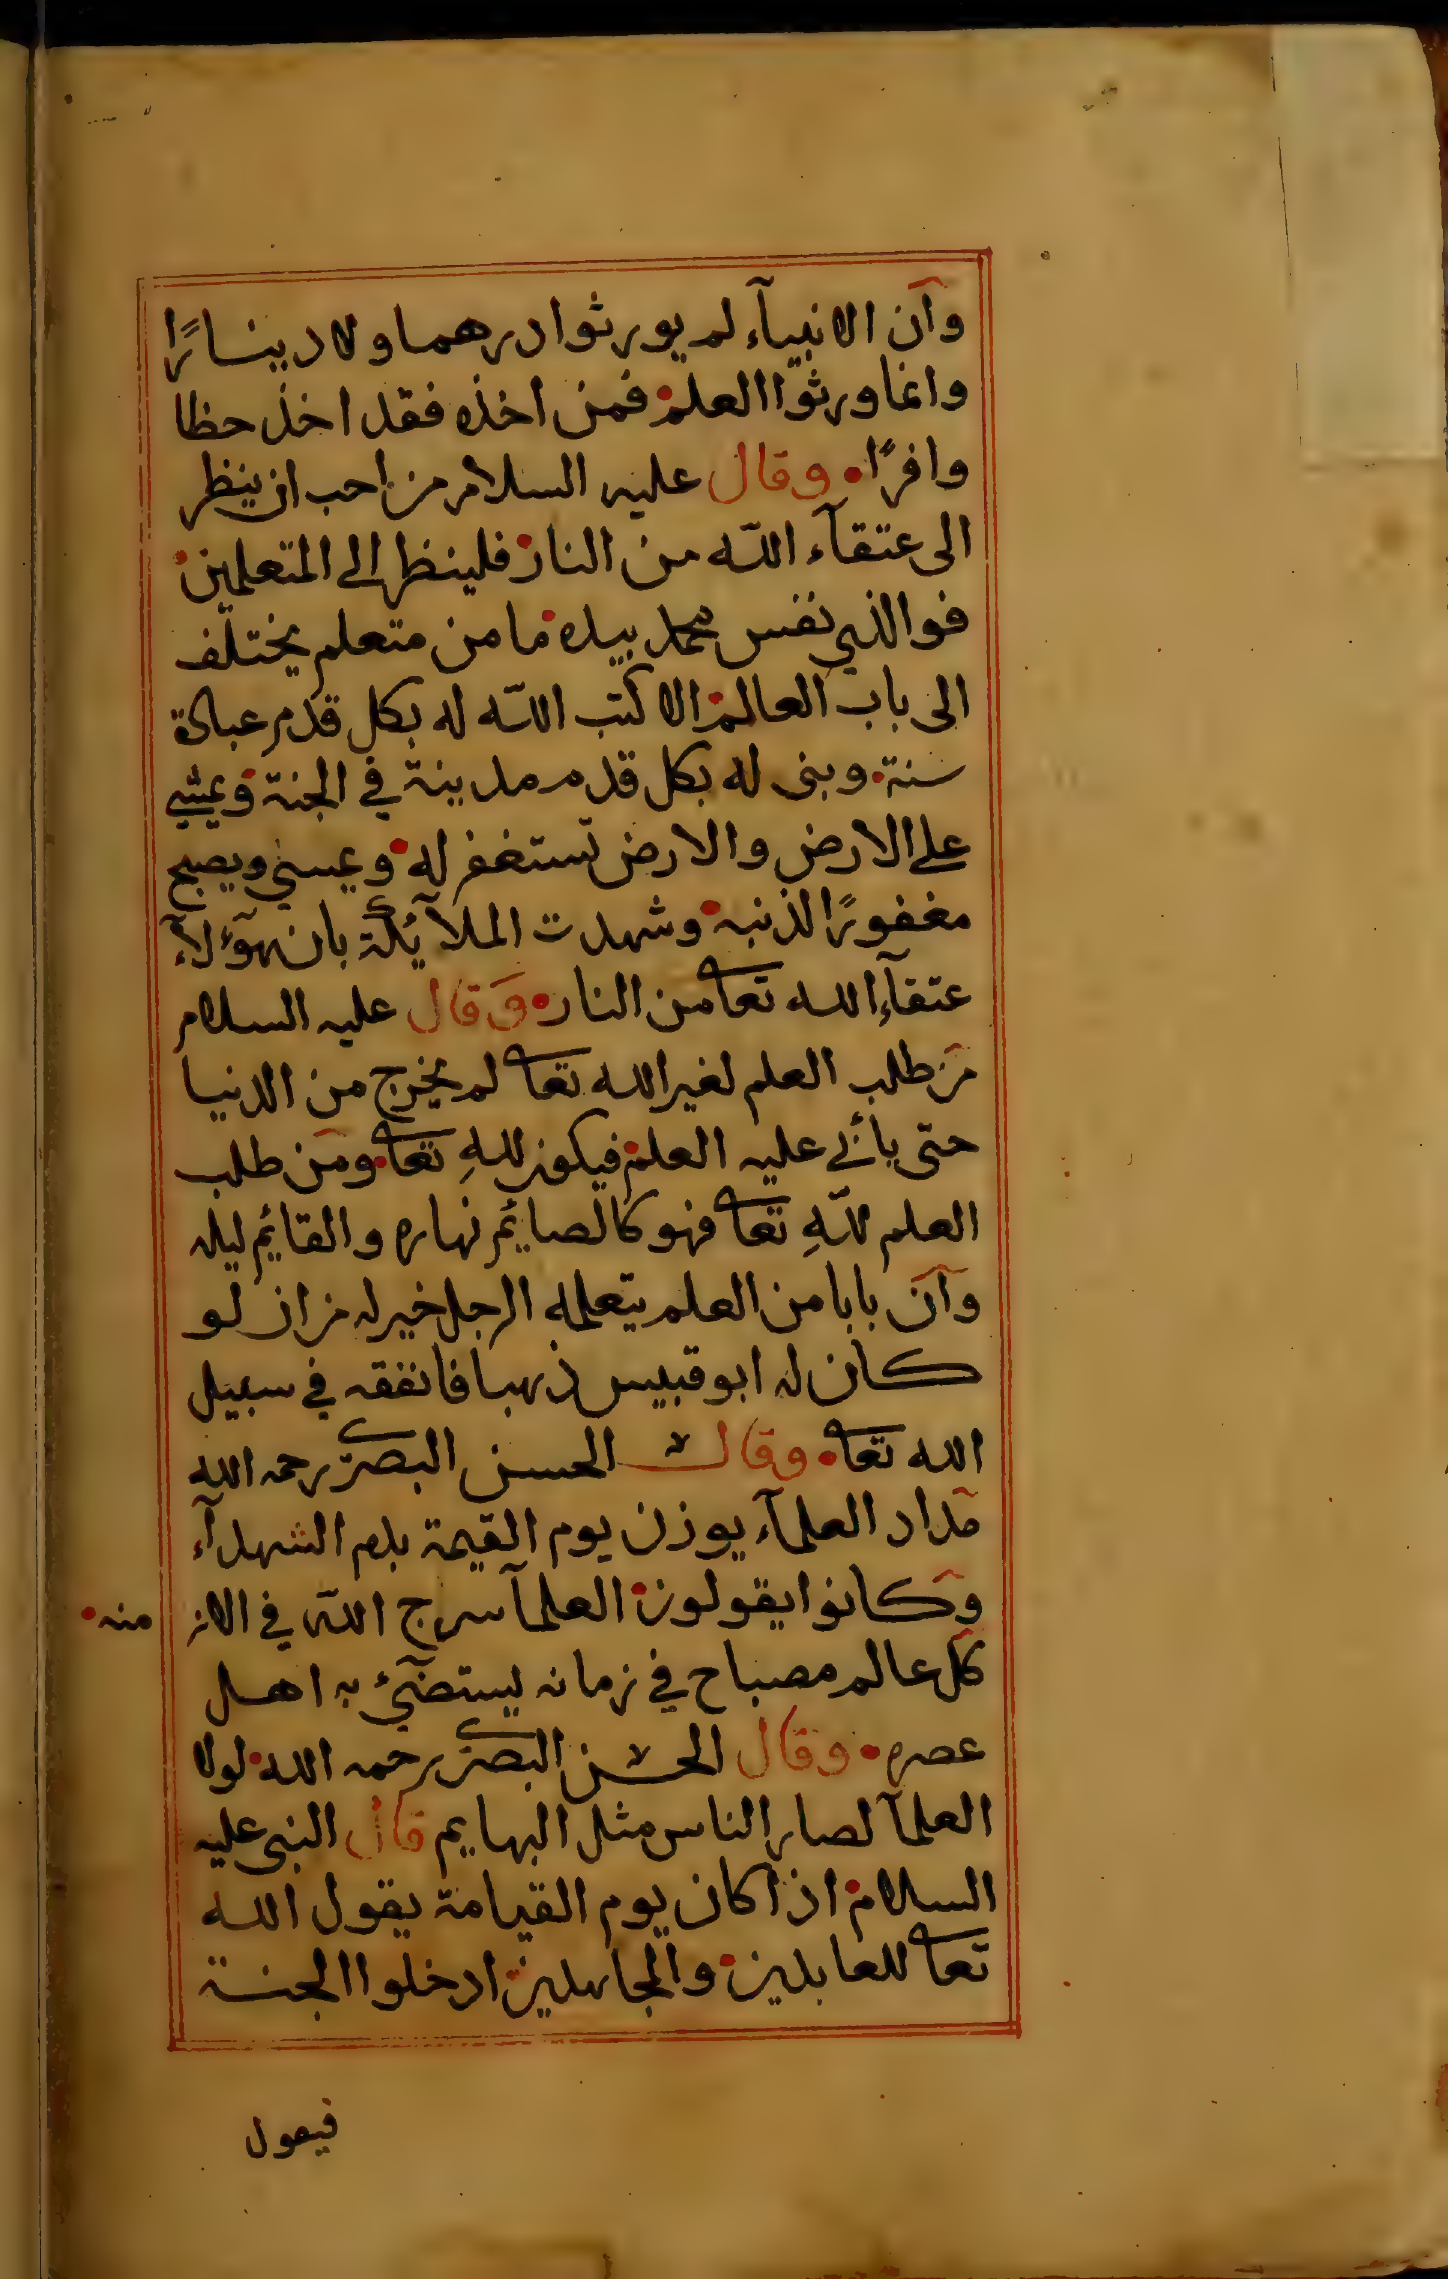 وآن الانبيآء لم يورثوا درهما ولا دينارًا
وانما ورثوا العلم فمن اخذه فقد اخذ حظا
وافرًا وقال عليه السلام من احب ان ينظر
الى عتقآء اللّه من النار فلينظر الى المتعلمين
فوالذي نفس محمد بيده ما من متعلم يختلف
الى باب العالم الا كتب اللّه له بكل قدم عبادة
سنة وبنى له بكل قدم مدينة في الجنة ويمشي
على الارض والارض تستغفر له ويمسي ويصبح
مغفورًا لذنبه وشهدت الملآئكة بان هؤلآء
عتقآء الله تعا من النار وقال عليه السلام
من طلب العلم لغير الله تعا لم يخرج من الدنيا
حتى يأتي عليه العلم فيكون للهِ تعا ومن طلب
العلم للّهِ تعا فهو كالصايم نهاره والقايم ليله
وآن بابا من العلم يتعلمه الرجل خير له من ان لو
كان له ابو قبيس ذهبا فانفقه في سبيل
الله تعا وقال الحسن البصرى رحمه الله
مداد العلمآء يوزن يوم القيمة بدم الشهدآء
وكانوا يقولون العلمآ سرج اللّه في الاز منه
كل عالم مصباح في زمانه يستضئ به اهل
عصره وقال الحسن البصرى رحمه الله لولا
العلمآ لصار الناس مثل البهايم قال النبى عليه
السلام اذا كان يوم القيامة يقول الله
تعا للعابدين والمجاهدين ادخلوا الجنة
فيقول